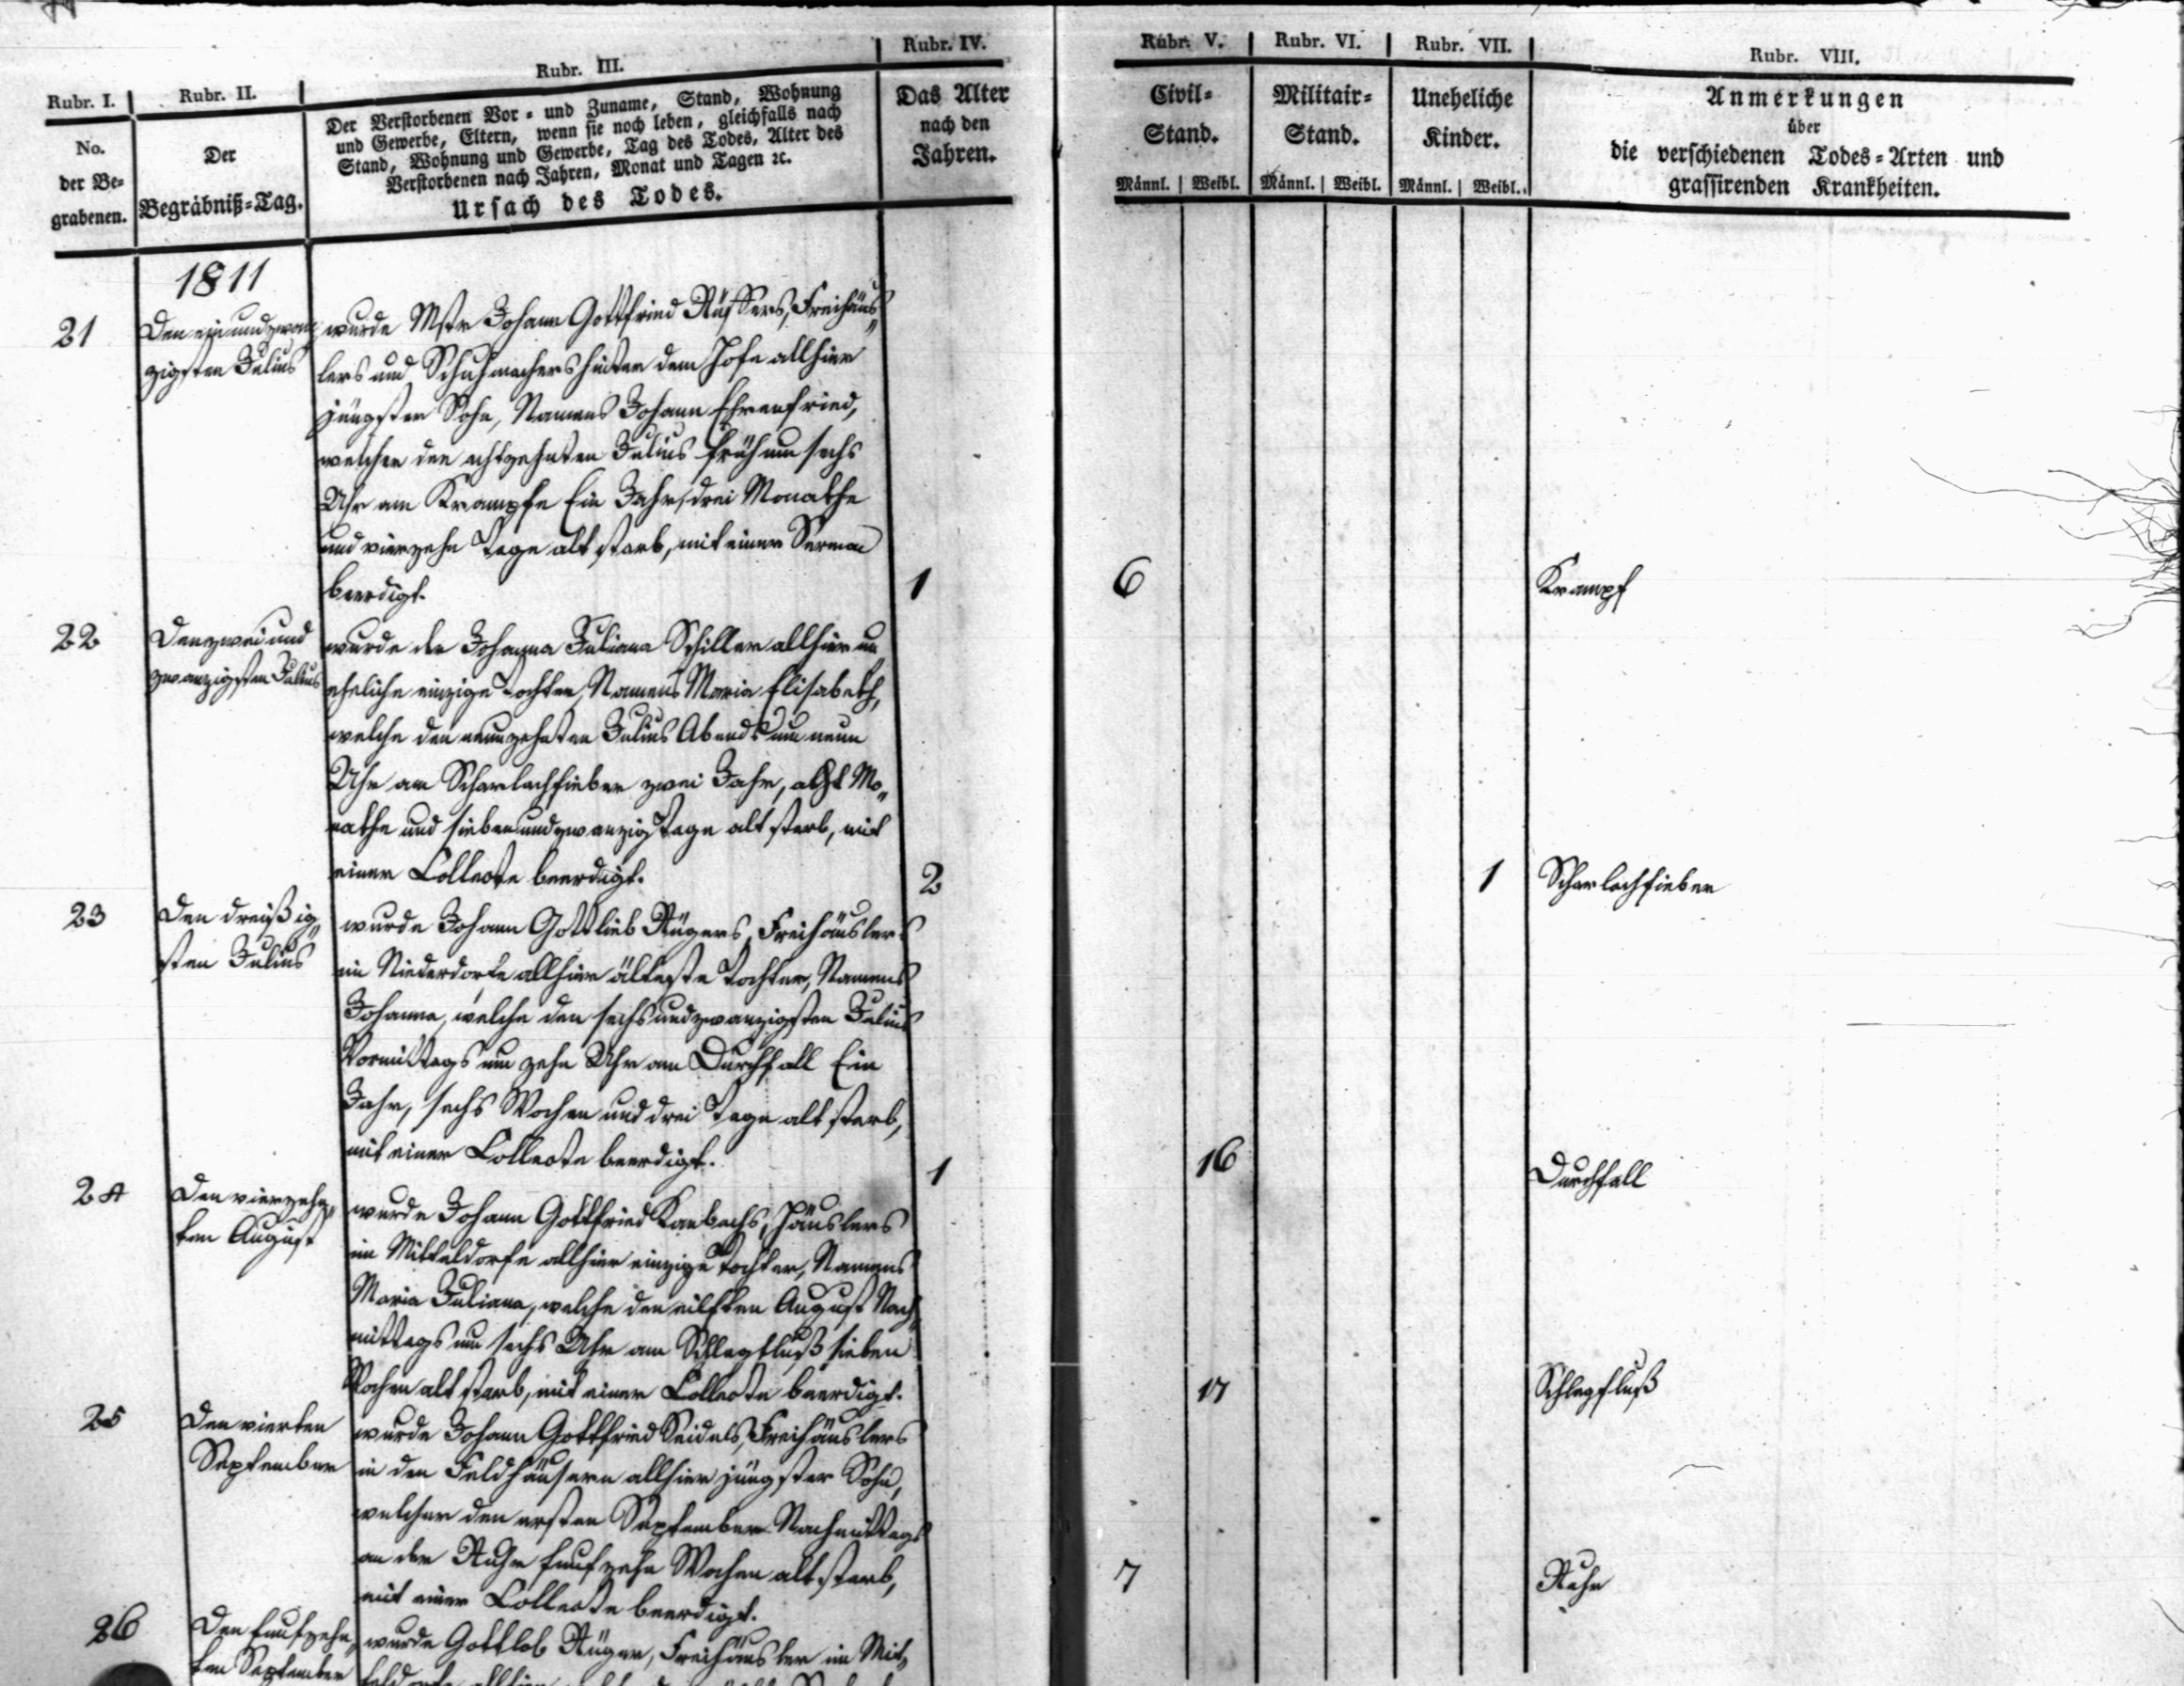 Rubr. I.
Rubr. II.
Rubr. III.
Rubr. IV.
Rubr. V.
Rubr. VI.
Rubr. VII.
Rubr. VIII.
No.
der Be-
grabenen.
Der
Begräbniß-Tag.
Der Verstorbenen Vor- und Zuname, Stand, Wohnung
und Gewerbe, Eltern, wenn sie noch leben, gleichfalls nach
Stand, Wohnung und Gewerbe, Tag des Todes, Alter des
Verstorbenen nach Jahren, Monat und Tagen ꝛc.
Ursach des Todes.
Das Alter
nach den
Jahren.
Civil-
Stand.
Männl. Weibl.
Militair-
Stand.
Männl. Weibl.
Uneheliche
Kinder.
Männl. Weibl.
Anmerkungen
über
die verschiedenen Todes-Arten und
grassirenden Krankheiten.
1811
21
Den ein und zwan
zigsten Julius
wurde Mstr Johann Gottfried Rüffers, Freihäus„
lers und Schuhmachers hinter dem Hofe allhier
jüngster Sohn, Namens Johann Ehrenfried,
welcher den achtzehnten Julius früh um sechs
Uhr am Krampfe Ein Jahr, drei Monathe
und vierzehn Tage alt starb, mit einer Sermon
beerdigt.
1
6
Krampf
22
Den zwei und
zwanzigsten Julius
wurde der Johanna Juliana Schiller allhier un
eheliche einzige Tochter, Namens Maria Elisabeth,
welche den neunzehnten Julius Abends um neun
Uhr am Scharlachfieber zwei Jahr, acht Mo„
nathe und siebenundzwanzig Tage alt starb, mit
einer Collecte beerdigt.
2
1
Scharlachfieber
23
Den dreißig„
sten Julius
wurde Johann Gottlieb Rügers, Freihäuslers
im Niederdorfe allhier älteste Tochter, Namens
Johanna, welche den sechsundzwanzigsten Julius
Vormittags um zehn Uhr am Durchfall Ein
Jahr, sechs Wochen und drei Tage alt starb,
mit einer Collecte beerdigt.
1
16
Durchfall
24
Den vierzehn„
ten August
wurde Johann Gottfried Kanbachs, Häuslers
im Mitteldorfe allhier einzige Tochter, Namens
Maria Juliana, welche den eilften August Nach„
mittags um sechs Uhr am Schlagfluß sieben
Wochen alt starb, mit einer Collecte beerdigt.
17
Schlagfluß
25
Den vierten
September
wurde Johann Gottfried Seidels, Freihäuslers
in den Feldhäusern allhier jüngster Sohn,
welcher den ersten September Nachmittags
an der Ruhr funfzehn Wochen alt starb,
mit einer Collecte beerdigt.
7
Ruhr
26
Den funfzehn„
ten September
wurde Gottlob Rüger, Freihäusler im Mit„